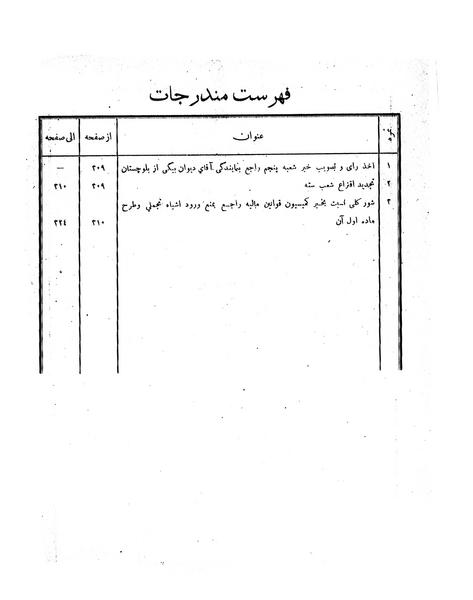 فهرست مندرجات
نمره عنوان از صفحه الی صفحه
۱ اخذ رای و تصویب خبر شعبه پنجم راجع بنمایندگی آقای دیوان بیگی از بلوچستان ۲۰۹ —
۲ تجدید اقتراع شعب سته ۲۰۹ ۲۱۰
۳ شور کلی نسبت بخبر کمیسیون قوانین مالیه راجع بمنع ورود اشیاء تجملی وطرح
ماده اول آن ۲۱۰ ۲۲٤